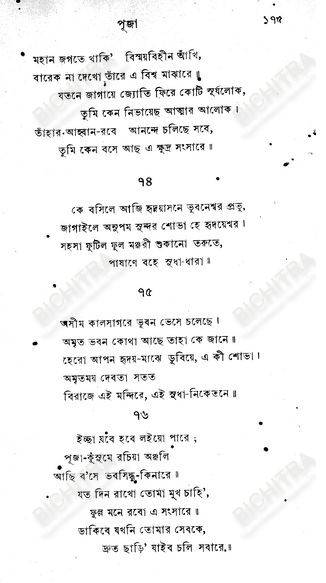 পূজা ১৭৫
মহান জগতে থাকি' বিস্ময়বিহীন আঁখি,
বারেক না দেখো তাঁরে এ বিশ্ব মাঝারে॥
যতনে জাগায়ে জ্যোতি ফিরে কোটি সূর্যলোক,
তুমি কেন নিভায়েছ আত্মার আলোক।
তাঁহার-আহ্বান-রবে আনন্দে চলিছে সবে,
তুমি কেন বসে আছ এ ক্ষুদ্র সংসারে॥
৭৪
কে বসিলে আজি হৃদয়াসনে ভুবনেশ্বর প্রভু,
জাগাইলে অনুপম সুন্দর শোভা হে হৃদয়েশ্বর।
সহসা ফুটিল ফুল মঞ্জরী শুকানো তরুতে,
পাষাণে বহে সুধা-ধারা॥
৭৫
অসীম কালসাগরে ভুবন ভেসে চলেছে।
অমৃত ভবন কোথা আছে তাহা কে জানে॥
হেরো আপন হৃদয়-মাঝে ডুবিয়ে, এ কী শোভা।
অমৃতময় দেবতা সতত
বিরাজে এই মন্দিরে, এই সুধা-নিকেতনে॥
৭৬
ইচ্ছা যবে হবে লইয়ো পারে;
পূজা-কুসুমে রচিয়া অঞ্জলি
আছি ব'সে ভবসিন্ধু-কিনারে॥
যত দিন রাখো তোমা মুখ চাহি',
ফুল্ল মনে রবো এ সংসারে॥
ডাকিবে যখনি তোমার সেবকে,
দ্রুত ছাড়ি' যাইব চলি সবারে॥
BICHITRA